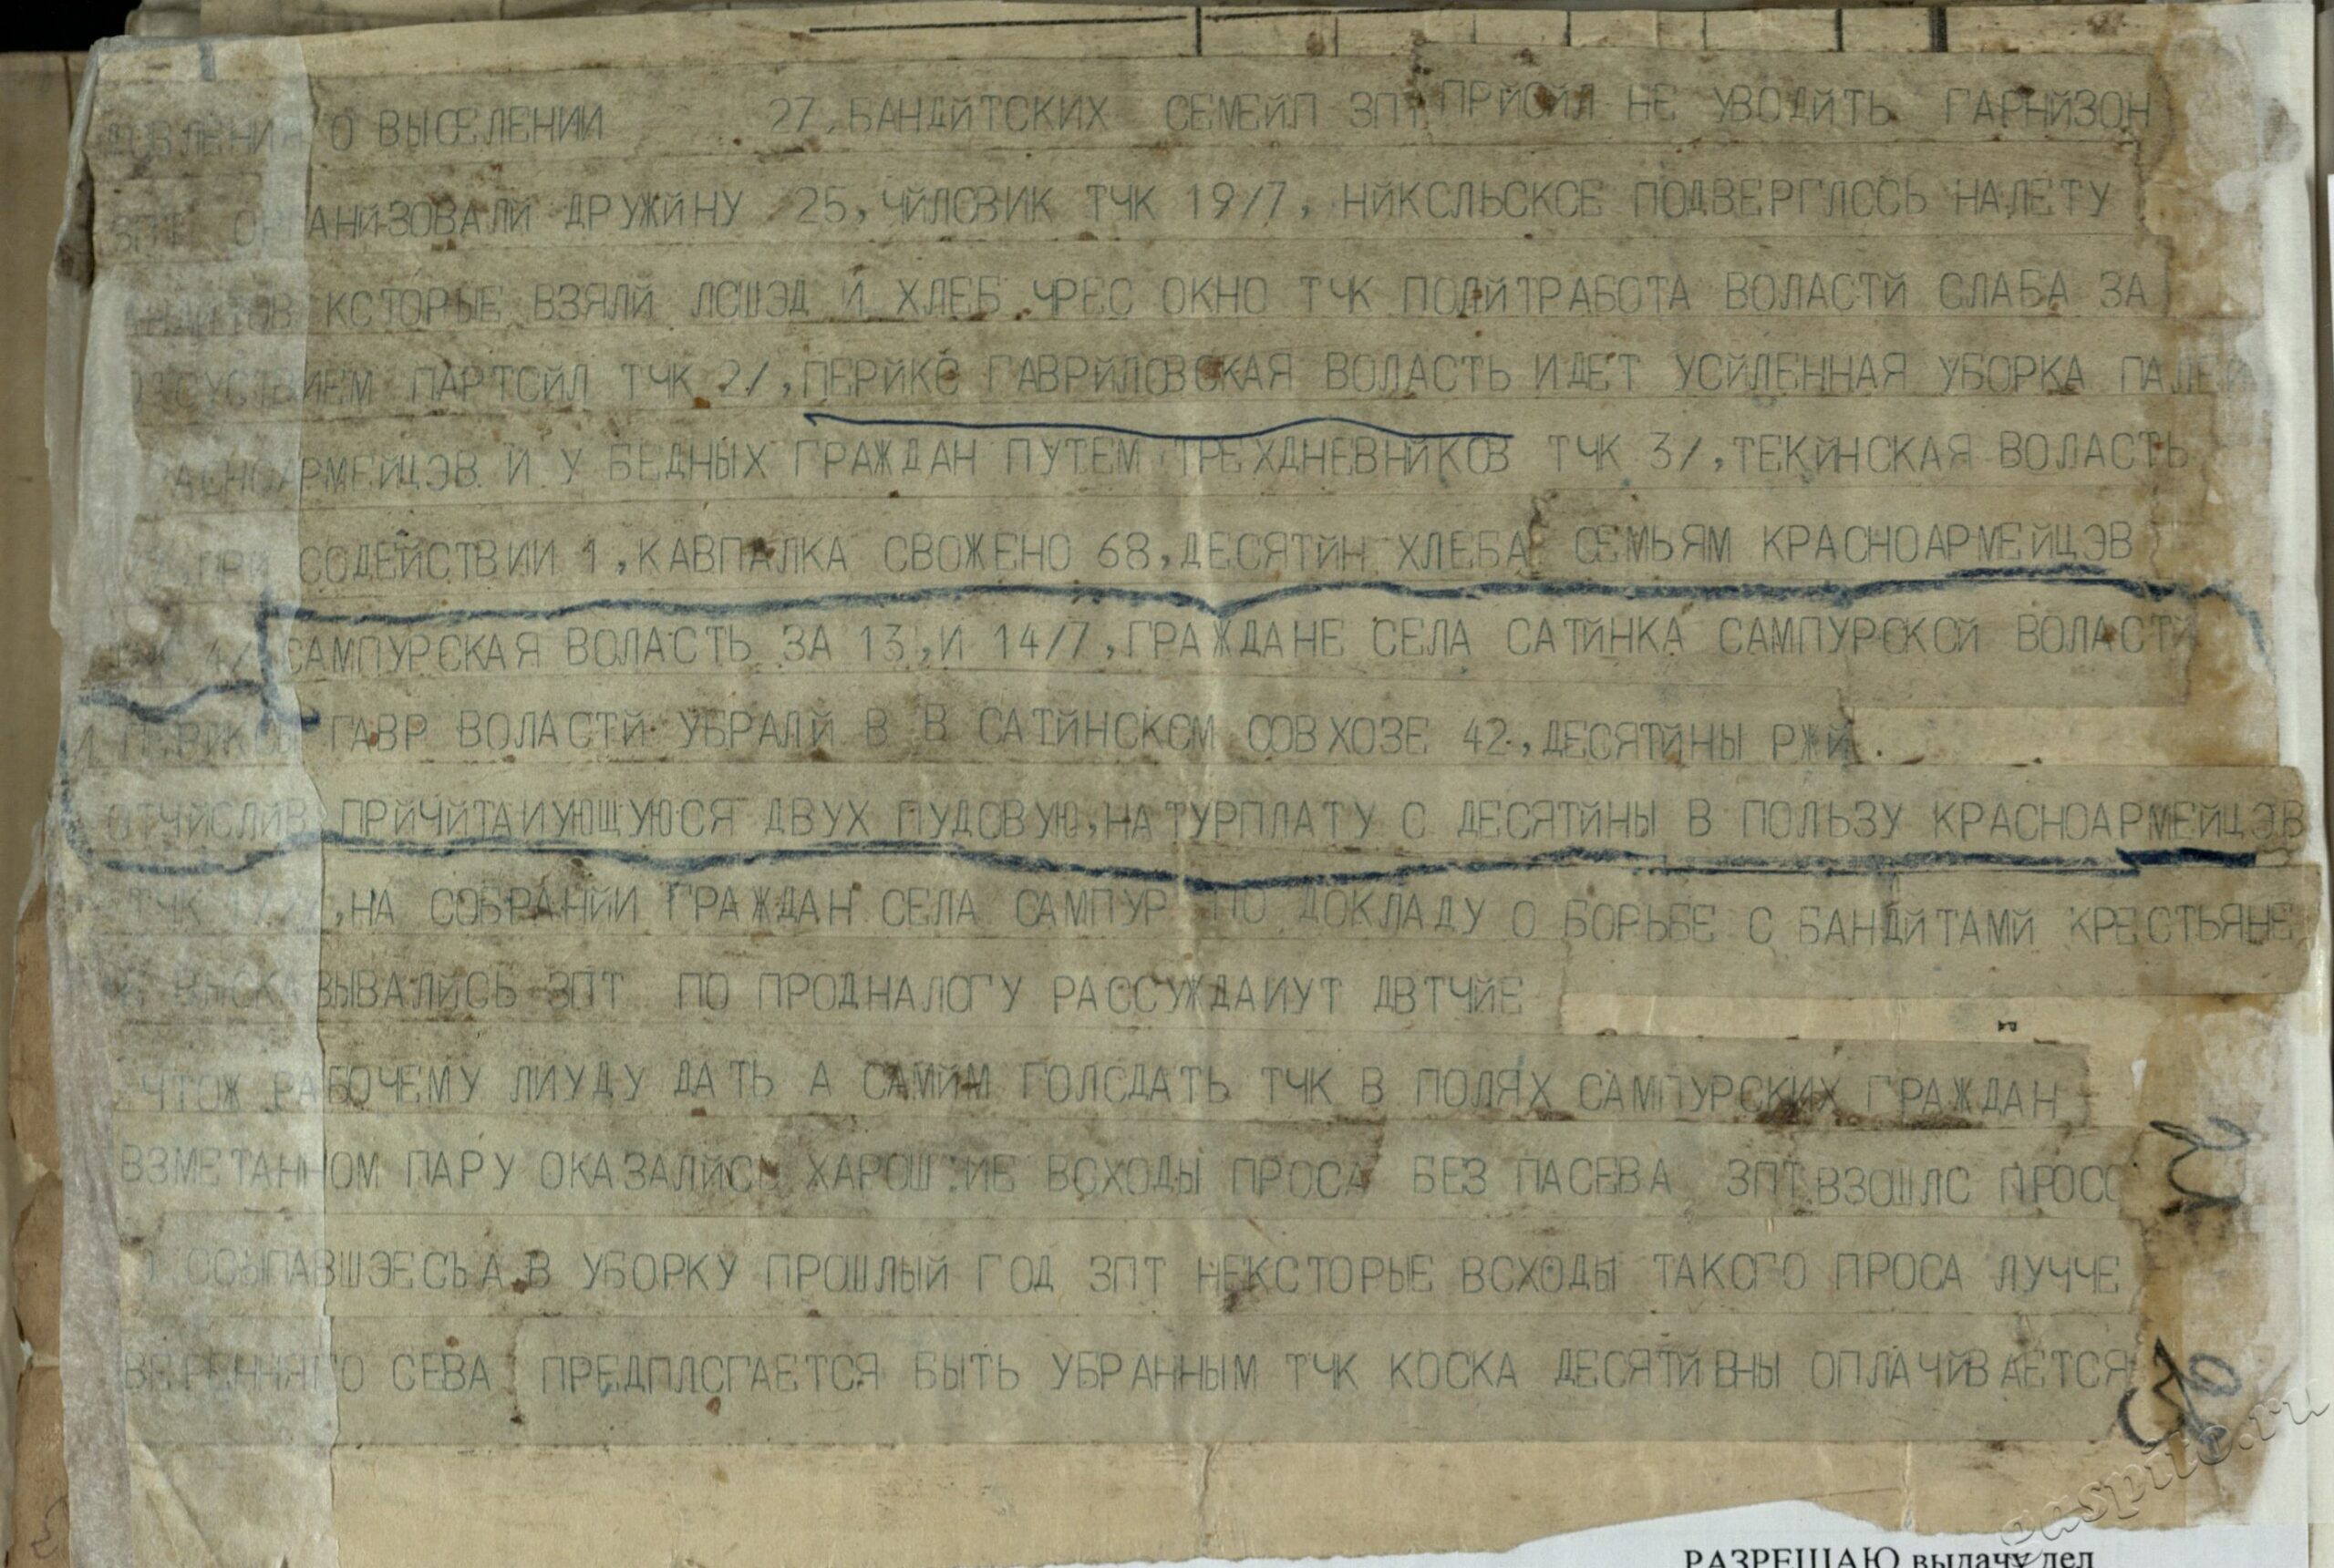 О ВЫСЕЛЕНИИ 27,БАНДЙТСКИХ СЕМЕЙП ЗПТ ПРЙСЙЛ НЕ УВОДЙТЬ ГАРНЙЗОН
ЗПТ ОРГАНЙЗОВАЛЙ ДРУЖЙНУ 25,ЧЙЛОВИК ТЧК 19/7, НЙКСЛЬСКСЕ ПОДВЕРГЛССЬ НАЛЕТУ
КСТОРЫЕ ВЗЯЛЙ ЛСШЭД И ХЛЕБ ЧРЕС ОКНО ТЧК ПОЛЙТРАБОТА ВОЛАСТЙ СЛАБА ЗА
ОТСУСТВИЕМ ПАРТСЙЛ ТЧК 2/,ПЕРЙКС ГАВРЙЛОВСКАЯ ВОЛАСТЬ ИДЕТ УСЙЛЕННАЯ УБОРКА
АСНОАРМЕЙЦЭВ И У БЕДНЫХ ГРАЖДАН ПУТЕМ ТРЕХДНЕВНЙКОВ ТЧК 3/,ТЕКЙНСКАЯ ВОЛАСТЬ
ПРИ СОДЕЙСТВИИ 1,КАВПАЛКА СВОЖЕНО 68,ДЕСЯТЙН ХЛЕБА СЕМЬЯМ КРАСНОАРМЕЙЦЭВ
4/ САМПУРСКАЯ ВОЛАСТЬ ЗА 13,И 14/7,ГРАЖДАНЕ СЕЛА САТЙНКА САМПУРСКСЙ ВОЛАСТЙ
И ГАВР ВОЛАСТЙ УБРАЛЙ В В САТЙНСКСМ СОВХОЗЕ 42,ДЕСЯТЙНЫ РЖЙ
ОТЧЙСЛЙВ ПРЙЧЙТАИУЮЩУЮСЯ ДВУХ ПУДОВУЮ,НАТУРПЛАТУ С ДЕСЯТЙНЫ В ПОЛЬЗУ КРАСНОАРМЕЙЦЭВ
ТЧК ,НА СОБРАНЙИ ГРАЖДАН СЕЛА САМПУР ПО ДОКЛАДУ О БОРЬБЕ С БАНДЙТАМЙ КРЕСТЬЯНЕ
ВЫСКАЗЫВАЛЙСЬ ЗПТ ПО ПРОДНАЛОГУ РАССУЖДАИУТ ДВТЧЙЕ
ЧТОЖ РАБОЧЕМУ ЛИУДУ ДАТЬ А САМЙМ ГОЛСДАТЬ ТЧК В ПОЛЯХ САМПУРСКИХ ГРАЖДАН
ВЗМЕТАННОМ ПАРУ ОКАЗАЛЙСЬ ХАРОШ:ИЕ ВСХОДЫ ПРОСА БЕЗ ПАСЕВА ЗПТ ВЗОШЛС ПРОСС
ОСЫПАВШЭЕСЪА В УБОРКУ ПРОШЛЫЙ ГОД ЗПТ НЕКСТОРЫЕ ВСХОДЫ ТАКСГО ПРОСА ЛУЧЧЕ
СЕВА ПРЕДПЛСГАЕТСЯ БЫТЬ УБРАННЫМ ТЧК КОСКА ДЕСЯТЙВНЫ ОПЛАЧЙВАЕТСЯ
РАЗРЕШАЮ выдачу дел